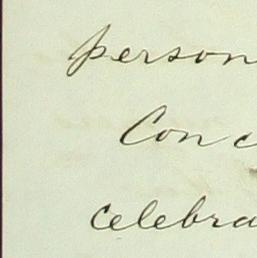 person
Con c
celebra